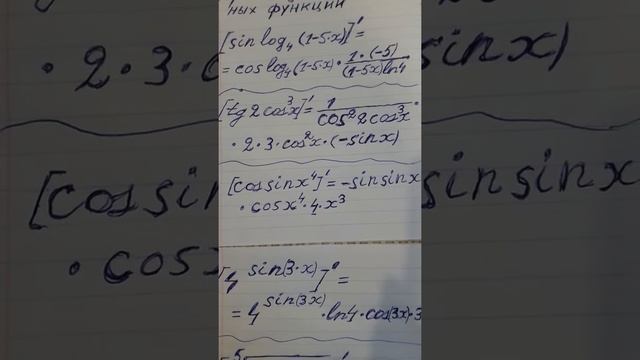 ных функции
[sin log₄(1-5·x)]'=
= cos log₄(1-5·x) · 1·(-5)/(1-5x)ln4
[tg 2cos³x]' = 1/cos²2cos³x ·
· 2·3·cos²x·(-sinx)
[cos sinx⁴]' = -sin sinx
· cosx⁴·4·x³
[4^sin(3·x)]' =
= 4^sin(3x) · ln4·cos(3x)·3